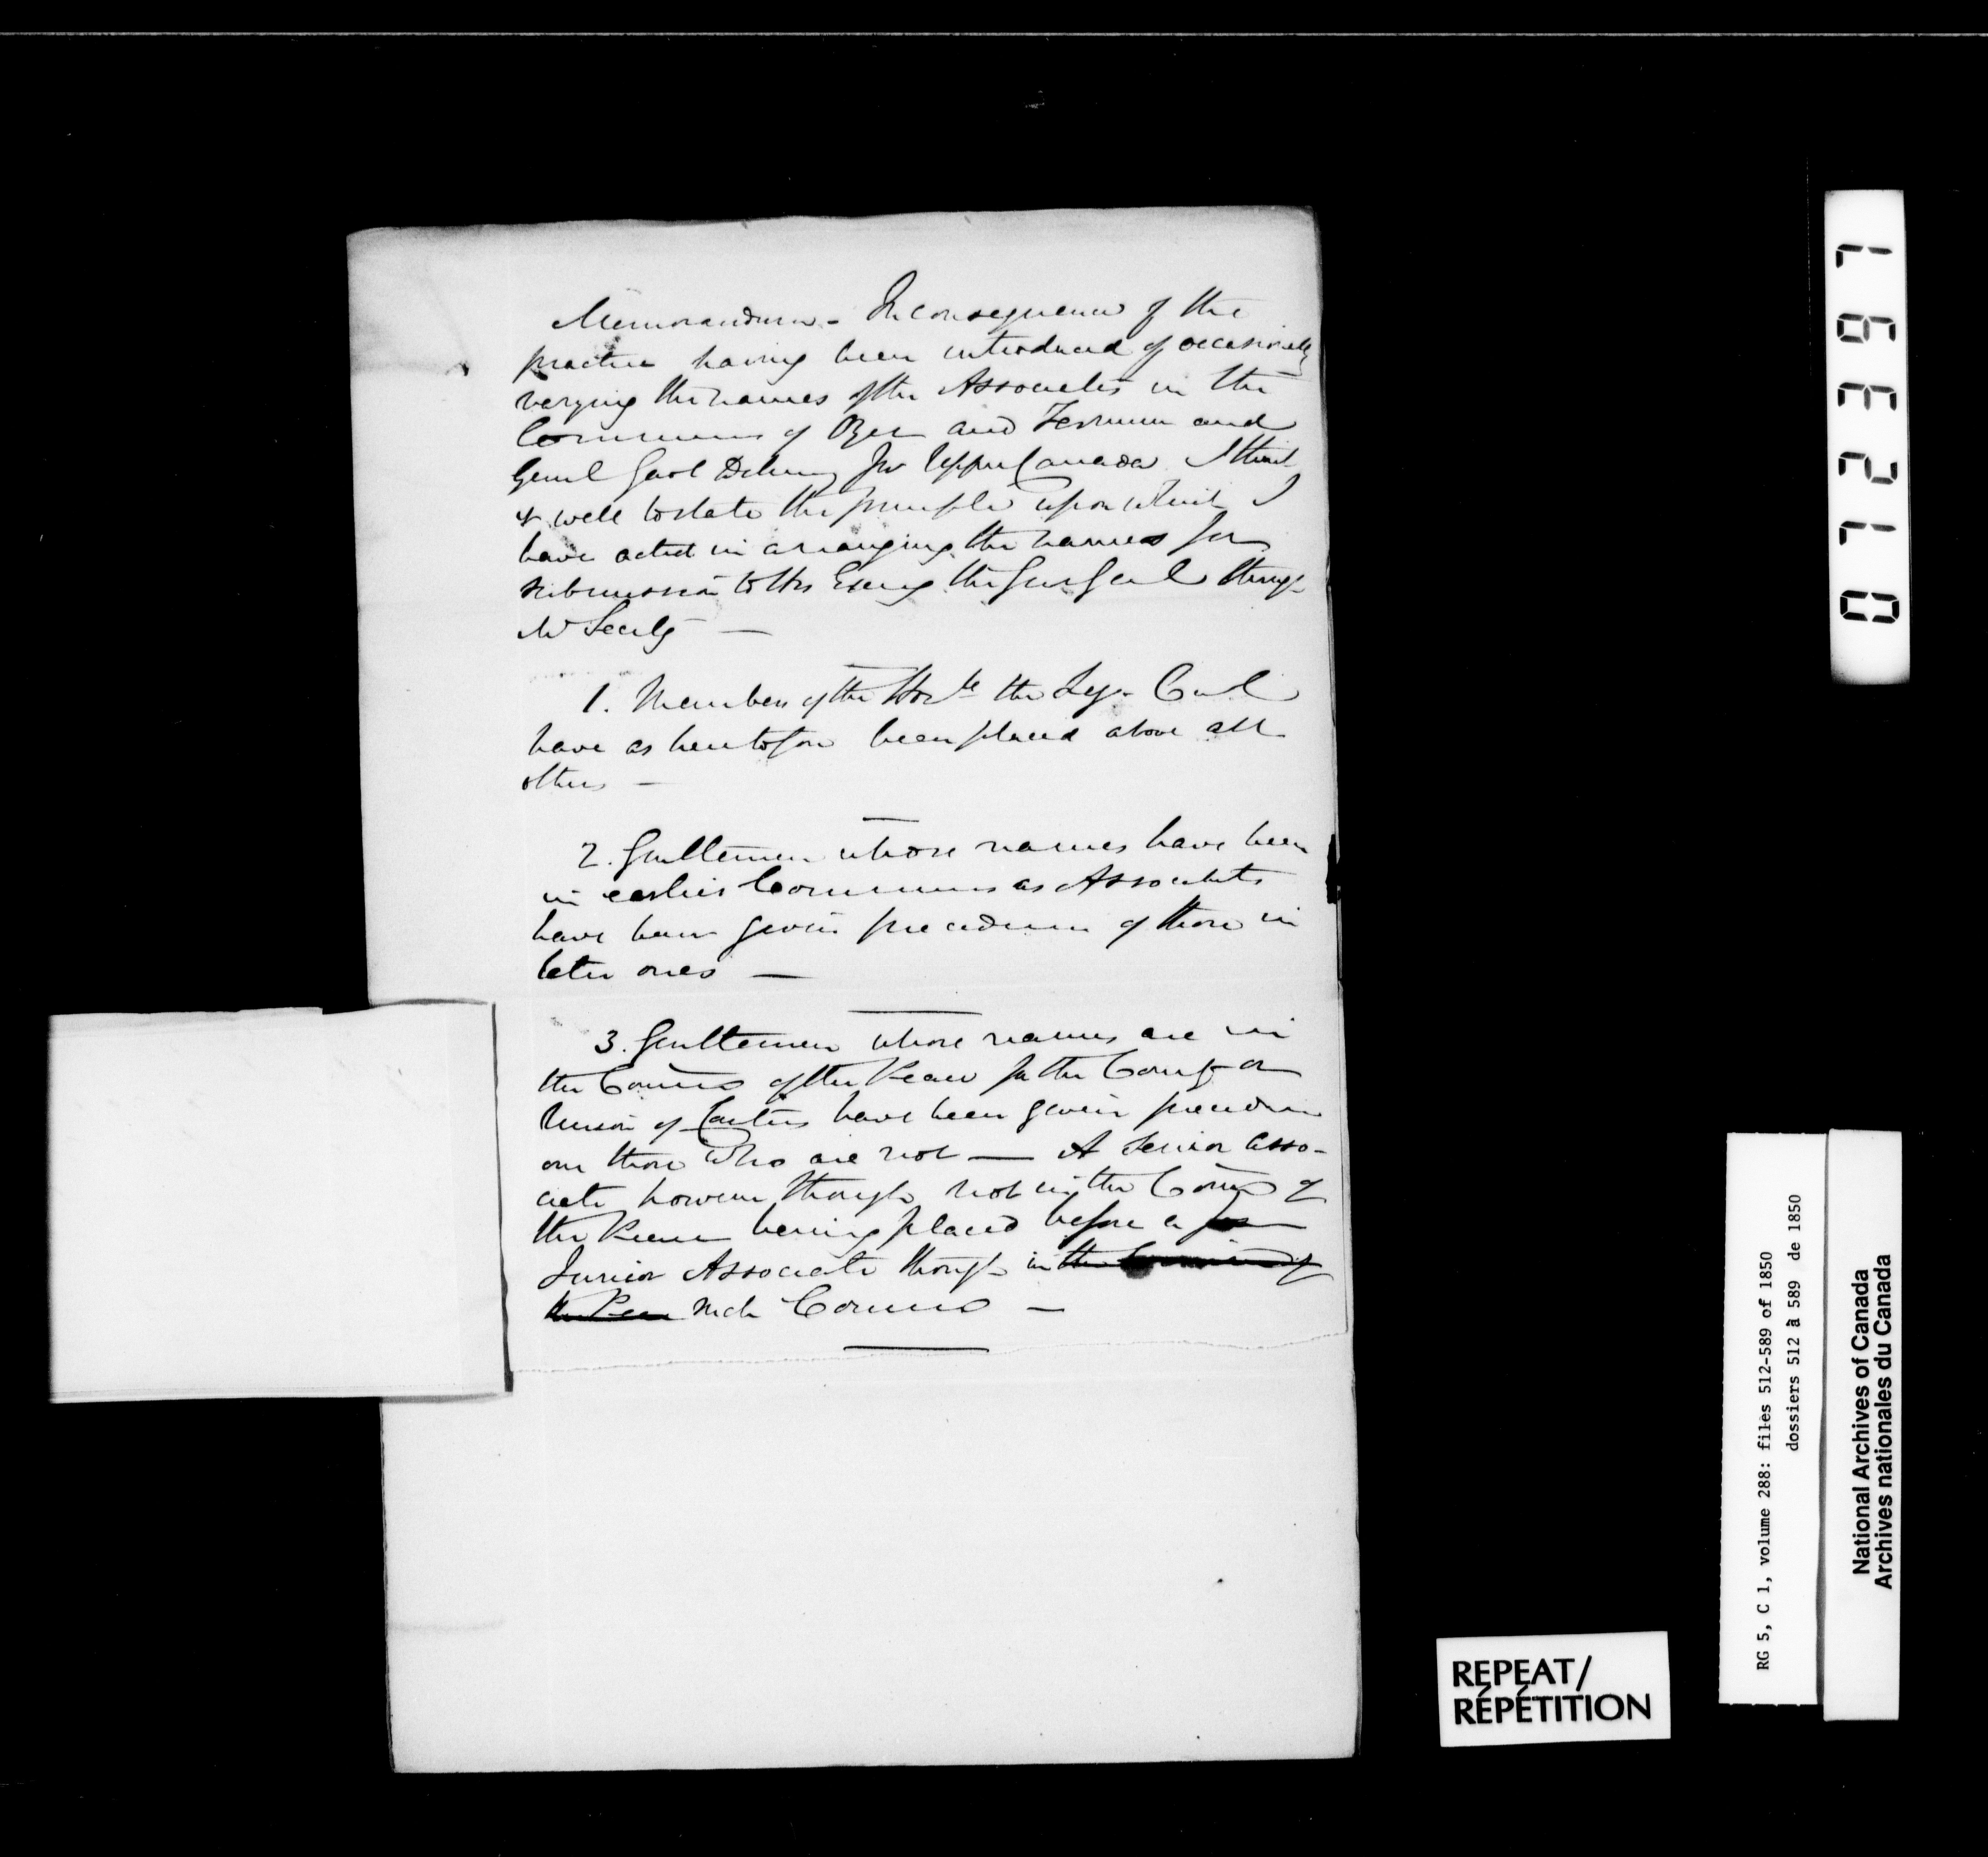 Memorandum - In consequence of the
practice having been introduced of occasionally
varying the names of the Associates in the
Commissions of Oyer and Terminer and
Genl Gaol Delivery for Upper Canada I think
it well to state the principle upon which I
have acted in arranging the names for
submission to His Excny the Gov Genl through
Mr Secty —
1. Members of the Honble the Leg. Cncl
have as heretofore been placed above all
others —
2. Gentlemen whose names have been
in earlier Commissions as Associates
have been given precedence of those in
later ones —
3. Gentlemen whose names are in
the Comms of the Peace for the County or
Union of Counties have been given precedence
over those who are not — A Senior Asso-
ciate however though not in the Comms of
the Peace having placed before a
Junior Associate though in the Commission of
the Peace such Comms —
0712397
RG 5, C 1, volume 288: files 512-589 of 1850
dossiers 512 à 589 de 1850
National Archives of Canada
Archives nationales du Canada
REPEAT/
RÉPÉTITION